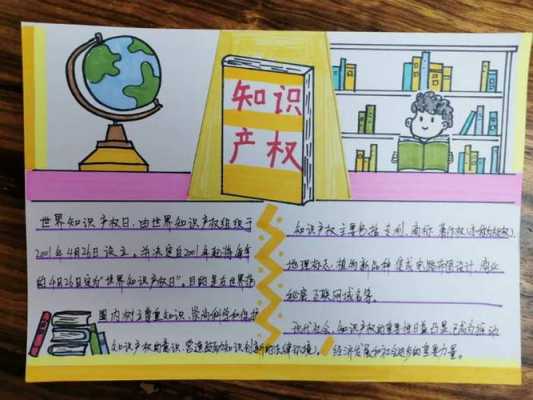 知识
产权
世界知识产权日，由世界知识产权组织于
2001年4月26日设立，并决定自2001年起将每年
的4月26日定为“世界知识产权日”。目的是在世界范
围内树立尊重知识，崇尚科学和保护
知识产权的意识，营造鼓励知识创新的法律环境。
知识产权主要包括专利、商标、著作权（亦称为版权）、
地理标志、植物新品种、集成电路布图设计、商业
秘密、互联网域名等。
现代社会，知识产权的重要性日益凸显，已成为推动
经济发展和社会进步的重要力量。